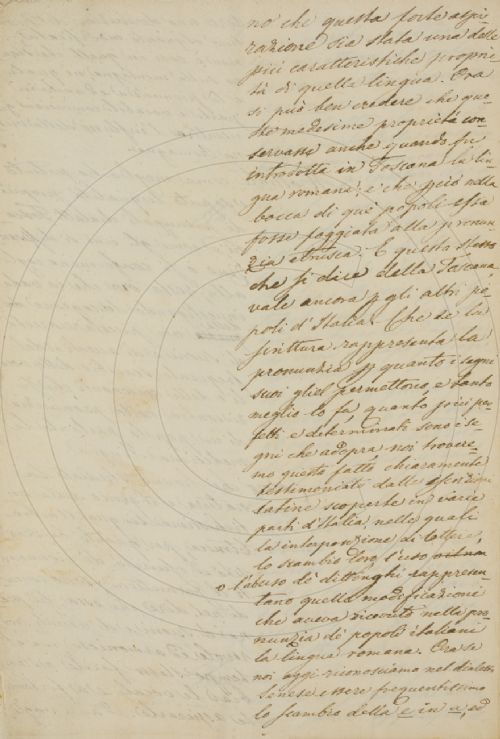 no' che questa forte aspi-
razione sia stata una delle
più caratteristiche proprie-
tà di quella lingua. Ora
si può ben credere che que-
ste medesime proprietà con-
servasse anche quando fu
introdotta in Toscana la lin-
gua romana; e che però nella
bocca di que' popoli essa
fosse foggiata alla pronun-
zia etrusca. E questo stesso
che si dice della Toscana
vale ancora p gli altri po-
poli d'Italia. Che se la
scrittura rappresenta la
pronunzia p quanto i segni
suoi gliel permettono, e tanto
meglio lo fa quanto più per-
fetti e determinati sono i se-
gni che adopra noi trovere-
mo questo fatto chiaramente
testimoniato dalle iscrizioni
latine scoperte in varie
parti d'Italia, nelle quali
la interposizione di lettere,
lo scambio loro l'uso
o l'abuso de' dittonghi rappresen-
tano quella modificazione
che aveva ricevuto nella pro-
nunzia de' popoli italiani
la lingua romana. Ora se
noi oggi riconosciamo nel dialetto
Senese essere frequentissimo
lo scambio della e in a, ed